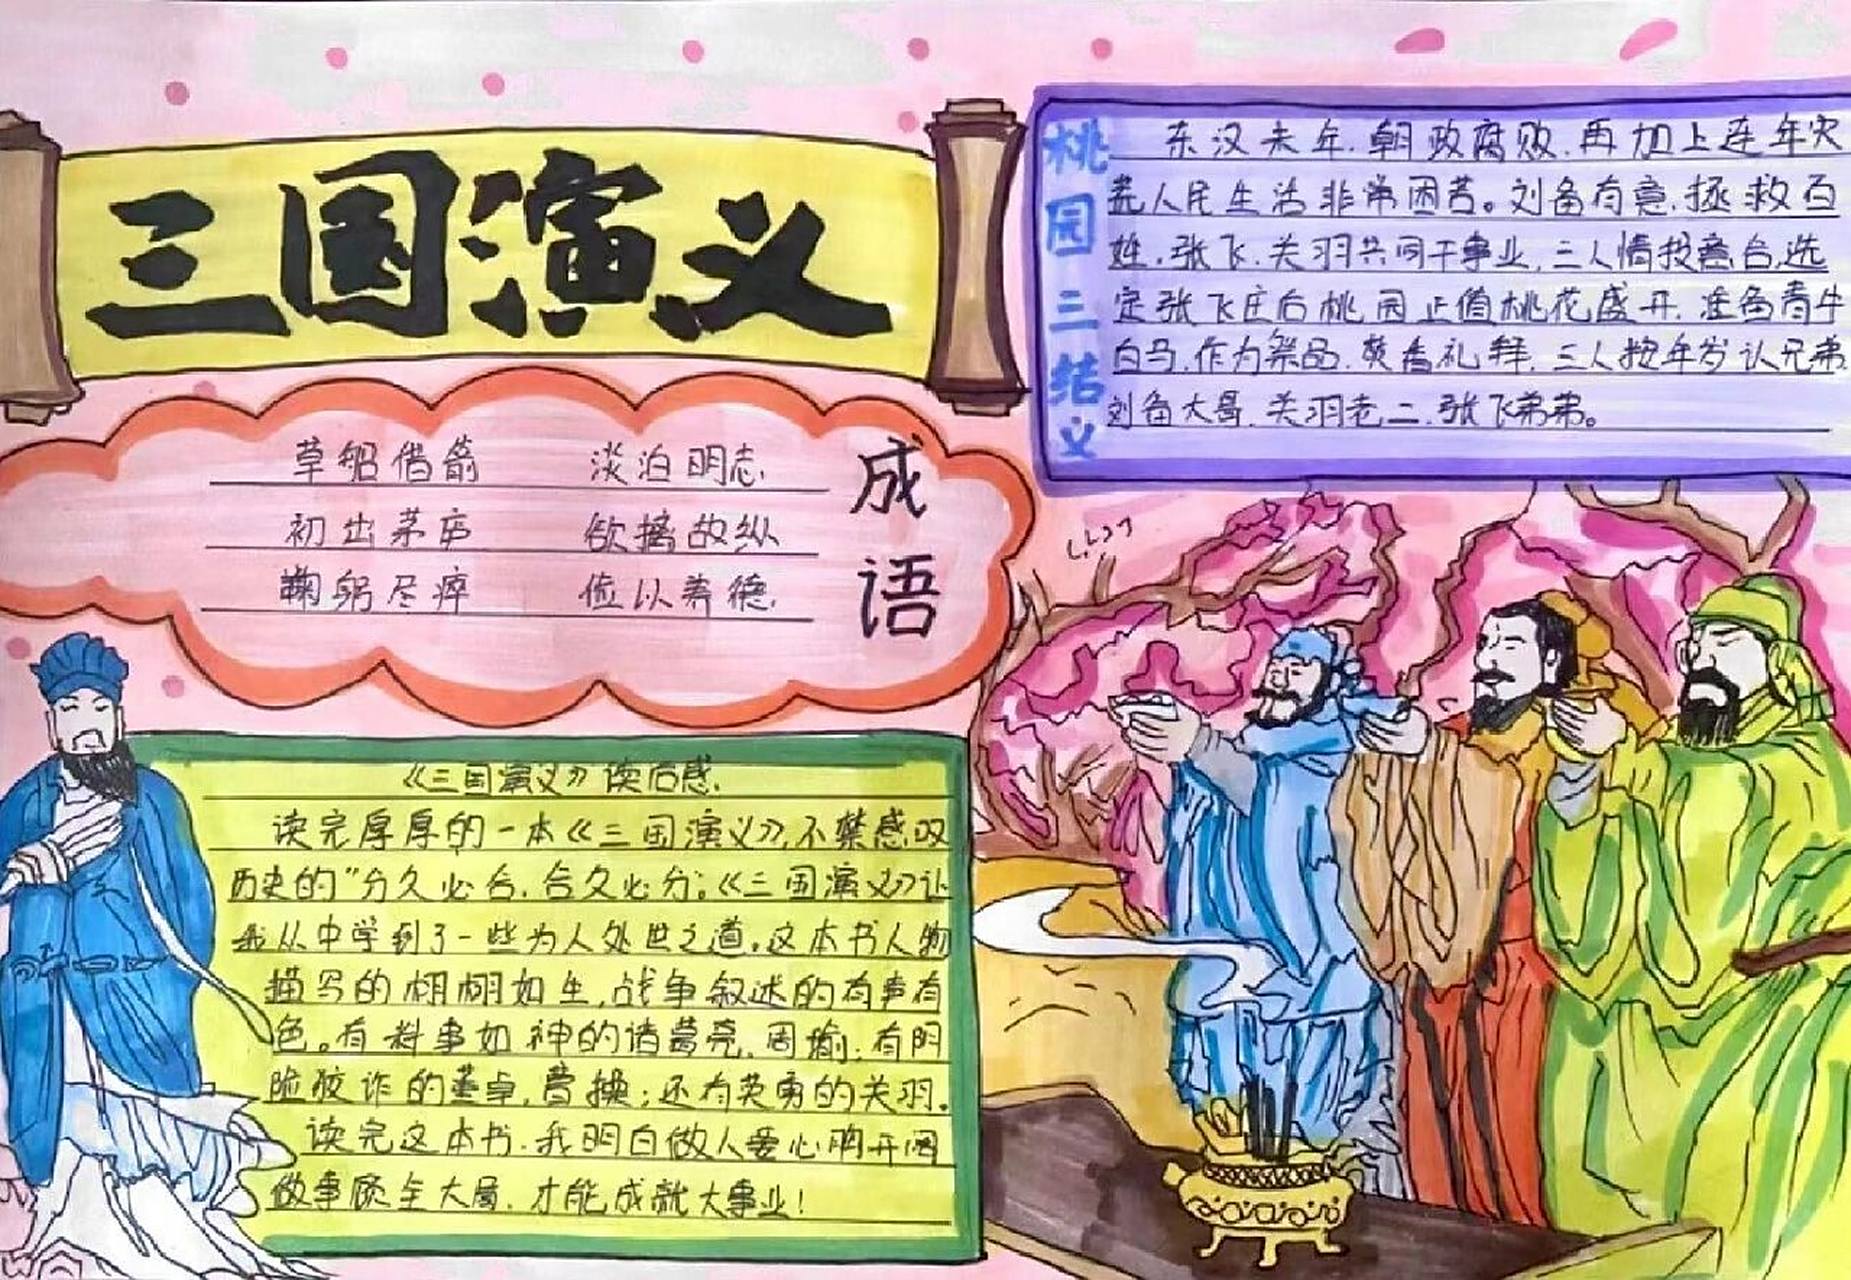 三国演义
成语
草船借箭 淡泊明志
初出茅庐 欲擒故纵
鞠躬尽瘁 俭以养德
桃园三结义
东汉末年,朝政腐败,再加上连年灾
荒人民生活非常困苦。刘备有意,拯救百
姓,张飞,关羽共同干事业,三人情投意合,选
定张飞庄后桃园正值桃花盛开,准备青牛
白马,作为祭品,焚香礼拜,三人按年岁认兄弟
刘备大哥,关羽老二,张飞弟弟。
《三国演义》读后感.
读完厚厚的一本《三国演义》,不禁感叹
历史的"分久必合,合久必分。《三国演义》让
我从中学到了一些为人处世之道。这本书人物
描写的栩栩如生,战争叙述的有声有
色。有料事如神的诸葛亮,周瑜;有阴
险狡诈的董卓,曹操;还有英勇的关羽。
读完这本书,我明白做人要心胸开阔
做事顾全大局,才能成就大事业!